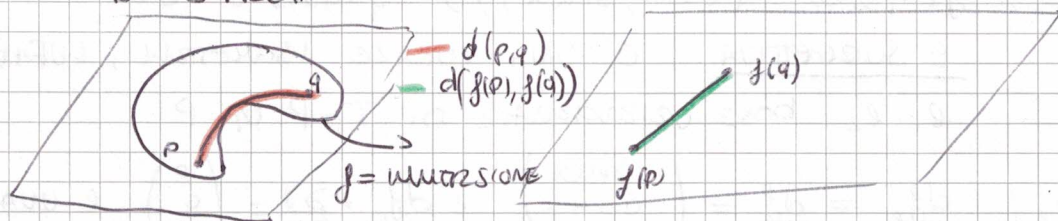 d(p,q)
q
d(f(p),f(q))
f(q)
p
f = IMMERSIONE
f(p)